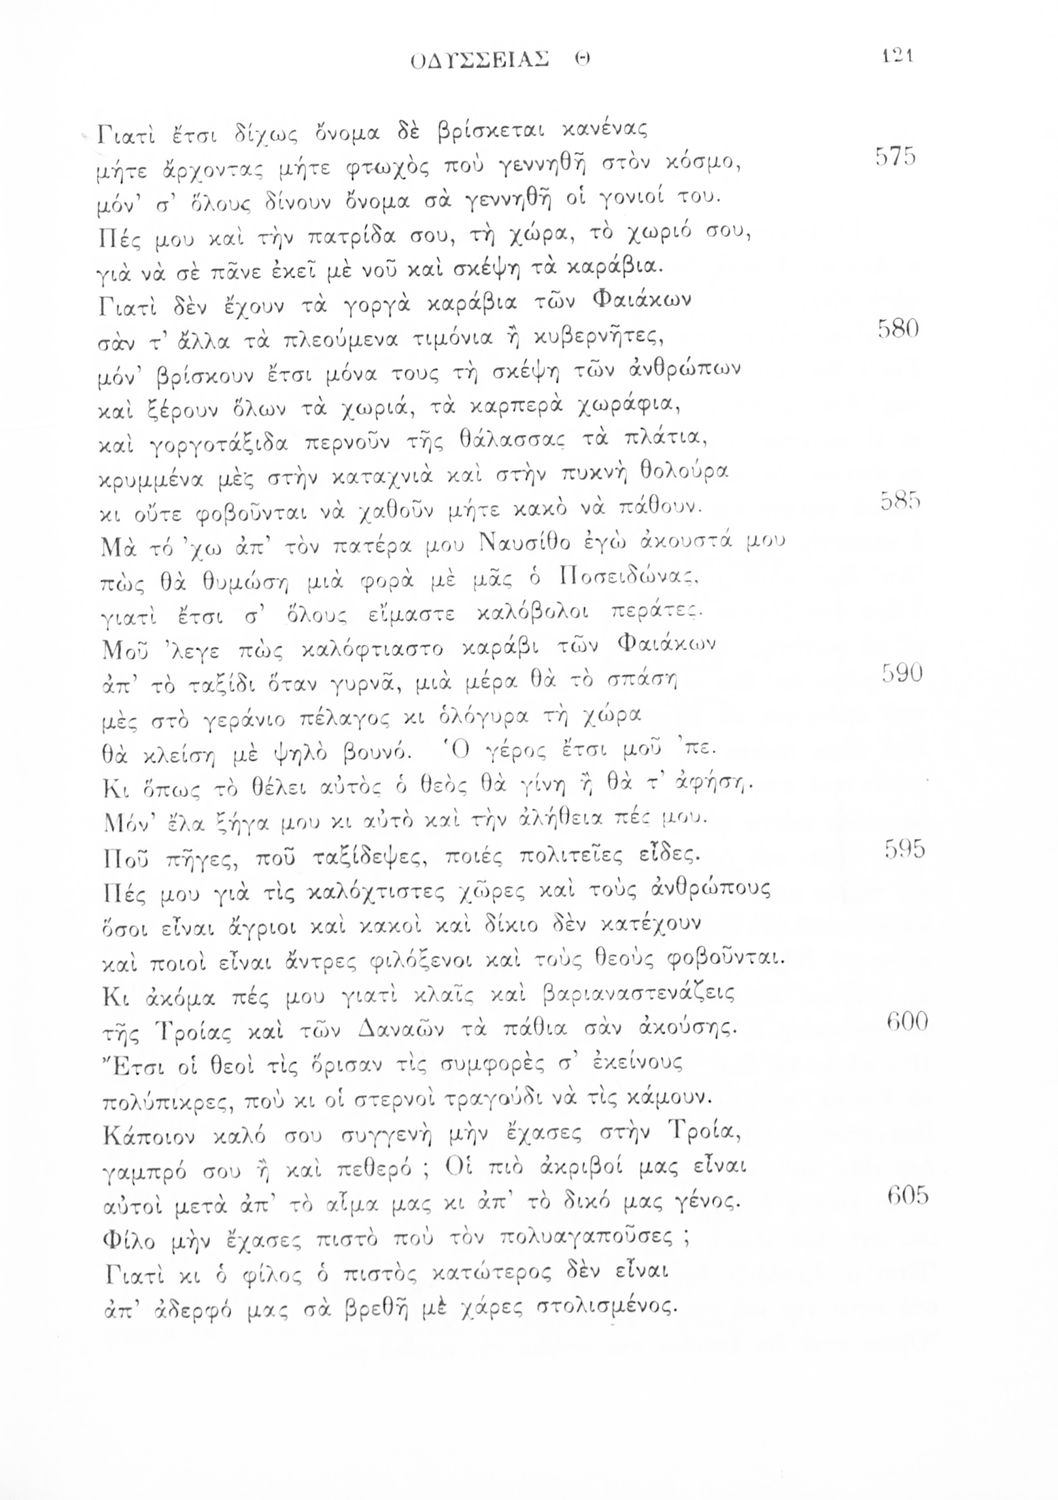 ΟΔΥΣΣΕΙΑΣ Θ 121
Γιατὶ ἔτσι δίχως ὄνομα δὲ βρίσκεται κανένας
μήτε ἄρχοντας μήτε φτωχὸς ποὺ γεννηθῆ στὸν κόσμο, 575
μόν' σ' ὅλους δίνουν ὄνομα σὰ γεννηθῆ οἱ γονιοί του.
Πές μου καὶ τὴν πατρίδα σου, τὴ χώρα, τὸ χωριό σου,
γιὰ νὰ σὲ πᾶνε ἐκεῖ μὲ νοῦ καὶ σκέψη τὰ καράβια.
Γιατὶ δὲν ἔχουν τὰ γοργὰ καράβια τῶν Φαιάκων
σὰν τ' ἄλλα τὰ πλεούμενα τιμόνια ἢ κυβερνῆτες, 580
μόν' βρίσκουν ἔτσι μόνα τους τὴ σκέψη τῶν ἀνθρώπων
καὶ ξέρουν ὅλων τὰ χωριά, τὰ καρπερὰ χωράφια,
καὶ γοργοτάξιδα περνοῦν τῆς θάλασσας τὰ πλάτια,
κρυμμένα μὲς στὴν καταχνιὰ καὶ στὴν πυκνὴ θολούρα
κι οὔτε φοβοῦνται νὰ χαθοῦν μήτε κακὸ νὰ πάθουν. 585
Μὰ τό 'χω ἀπ' τὸν πατέρα μου Ναυσίθο ἐγὼ ἀκουστά μου
πὼς θὰ θυμώση μιὰ φορὰ μὲ μᾶς ὁ Ποσειδώνας,
γιατὶ ἔτσι σ' ὅλους εἴμαστε καλόβολοι περάτες.
Μοῦ 'λεγε πὼς καλόφτιαστο καράβι τῶν Φαιάκων
ἀπ' τὸ ταξίδι ὅταν γυρνᾶ, μιὰ μέρα θὰ τὸ σπάση 590
μὲς στὸ γεράνιο πέλαγος κι ὁλόγυρα τὴ χώρα
θὰ κλείση μὲ ψηλὸ βουνό. Ὁ γέρος ἔτσι μοῦ 'πε.
Κι ὅπως τὸ θέλει αὐτὸς ὁ θεὸς θὰ γίνη ἢ θὰ τ' ἀφήση.
Μόν' ἔλα ξήγα μου κι αὐτὸ καὶ τὴν ἀλήθεια πές μου.
Ποῦ πῆγες, ποῦ ταξίδεψες, ποιές πολιτεῖες εἶδες. 595
Πές μου γιὰ τὶς καλόχτιστες χῶρες καὶ τοὺς ἀνθρώπους
ὅσοι εἶναι ἄγριοι καὶ κακοὶ καὶ δίκιο δὲν κατέχουν
καὶ ποιοὶ εἶναι ἄντρες φιλόξενοι καὶ τοὺς θεοὺς φοβοῦνται.
Κι ἀκόμα πές μου γιατὶ κλαῖς καὶ βαριαναστενάζεις
τῆς Τροίας καὶ τῶν Δαναῶν τὰ πάθια σὰν ἀκούσης. 600
Ἔτσι οἱ θεοὶ τὶς ὅρισαν τὶς συμφορὲς σ' ἐκείνους
πολύπικρες, ποὺ κι οἱ στερνοὶ τραγούδι νὰ τὶς κάμουν.
Κάποιον καλό σου συγγενὴ μὴν ἔχασες στὴν Τροία,
γαμπρό σου ἢ καὶ πεθερό ; Οἱ πιὸ ἀκριβοί μας εἶναι
αὐτοὶ μετὰ ἀπ' τὸ αἷμα μας κι ἀπ' τὸ δικό μας γένος. 605
Φίλο μὴν ἔχασες πιστὸ ποὺ τὸν πολυαγαποῦσες ;
Γιατὶ κι ὁ φίλος ὁ πιστὸς κατώτερος δὲν εἶναι
ἀπ' ἀδερφό μας σὰ βρεθῆ μὲ χάρες στολισμένος.